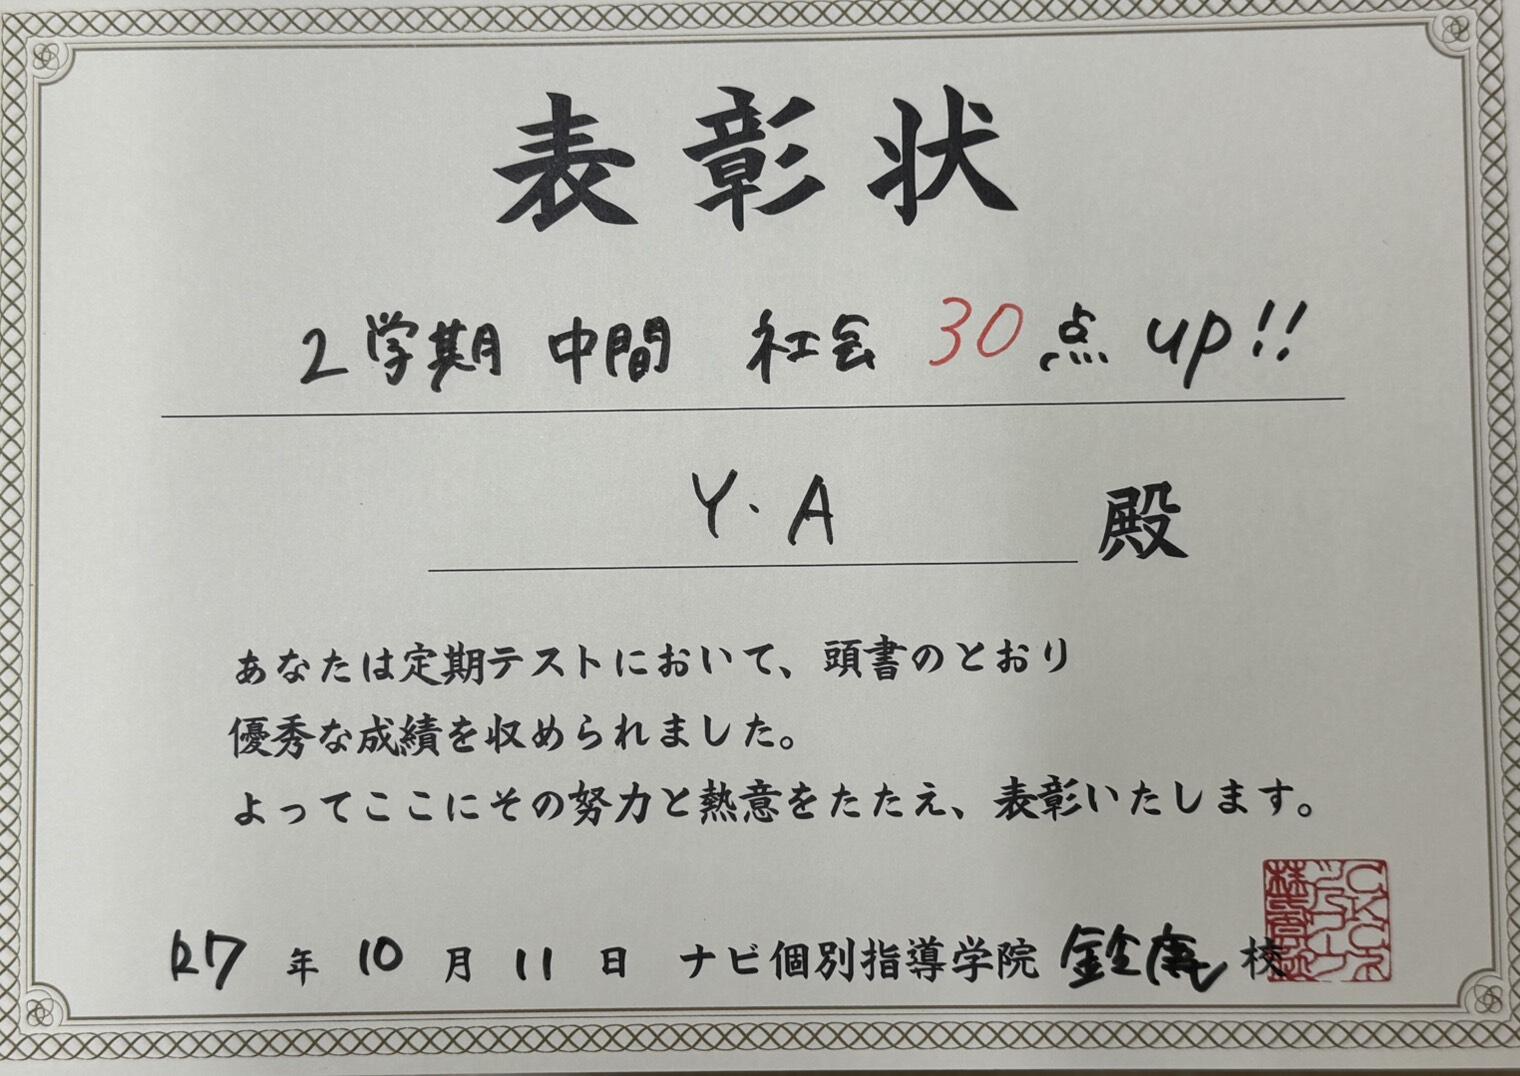 表彰状
2学期 中間 社会 30点 up!!
Y.A 殿
あなたは定期テストにおいて、頭書のとおり
優秀な成績を収められました。
よってここにその努力と熱意をたたえ、表彰いたします。
R7 年 10 月 11 日 ナビ個別指導学院 鈴鹿 校